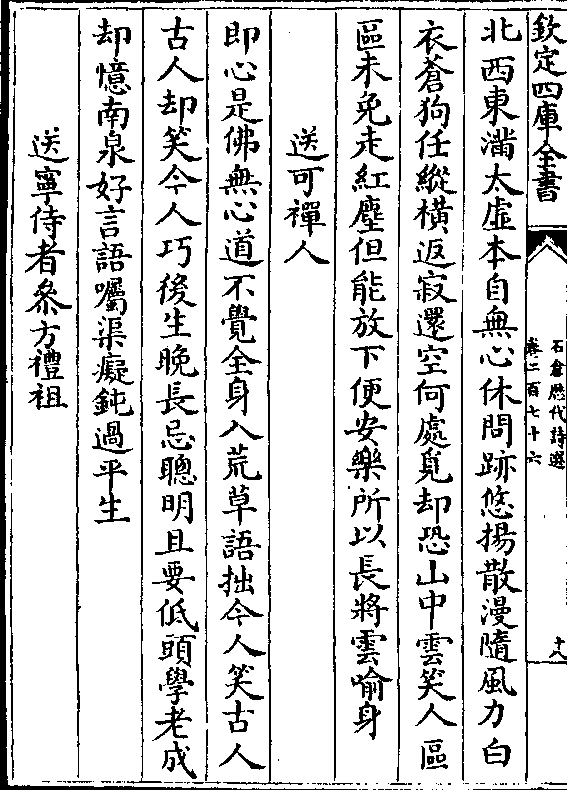 欽定四庫全書
石倉歷代詩選
卷二百七十六
十八
北西東滿太虛本自無心休問跡悠揚散漫隨風力白
衣蒼狗任縱橫返寂還空何處覓却恐山中雲笑人區
區未免走紅塵但能放下便安樂所以長將雲喻身
送可禪人
即心是佛無心道不覺全身入荒草語拙今人笑古人
古人却笑今人巧後生晚長忌聰明且要低頭學老成
却憶南泉好言語囑渠癡鈍過平生
送寧侍者叅方禮祖